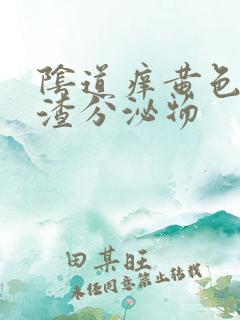 陰道痒黄色
渣分泌物
田某旺
未经同意禁止转载